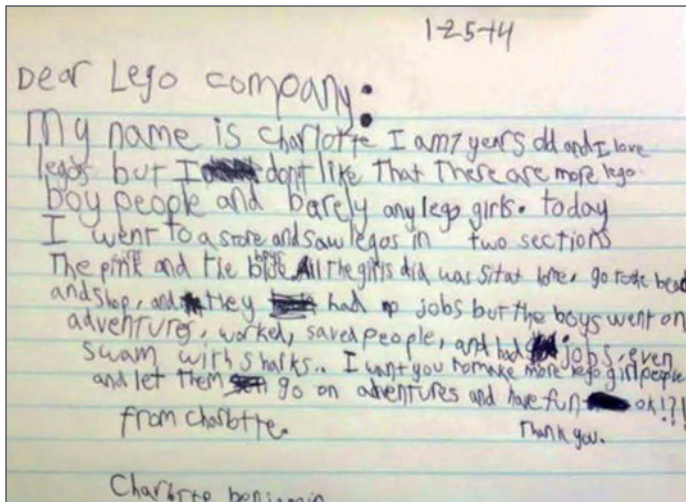 1-25-14
Dear Lego company:
My name is Charlotte I am 7 years old and I love
legos but I dont like That There are more lego
boy people and barely any lego girls. today
I went to a store and saw legos in two sections
The pink girls and the blue boys All the girls did was sit at home, go to the beach
and shop, and they had no jobs but the boys went on
adventures, worked, saved people, and had jobs, even
swam with sharks.. I want you to make more lego girl people
and let them go on adventures and have fun ok!?!
from Charlotte. Thank you.
Charlotte benjamin